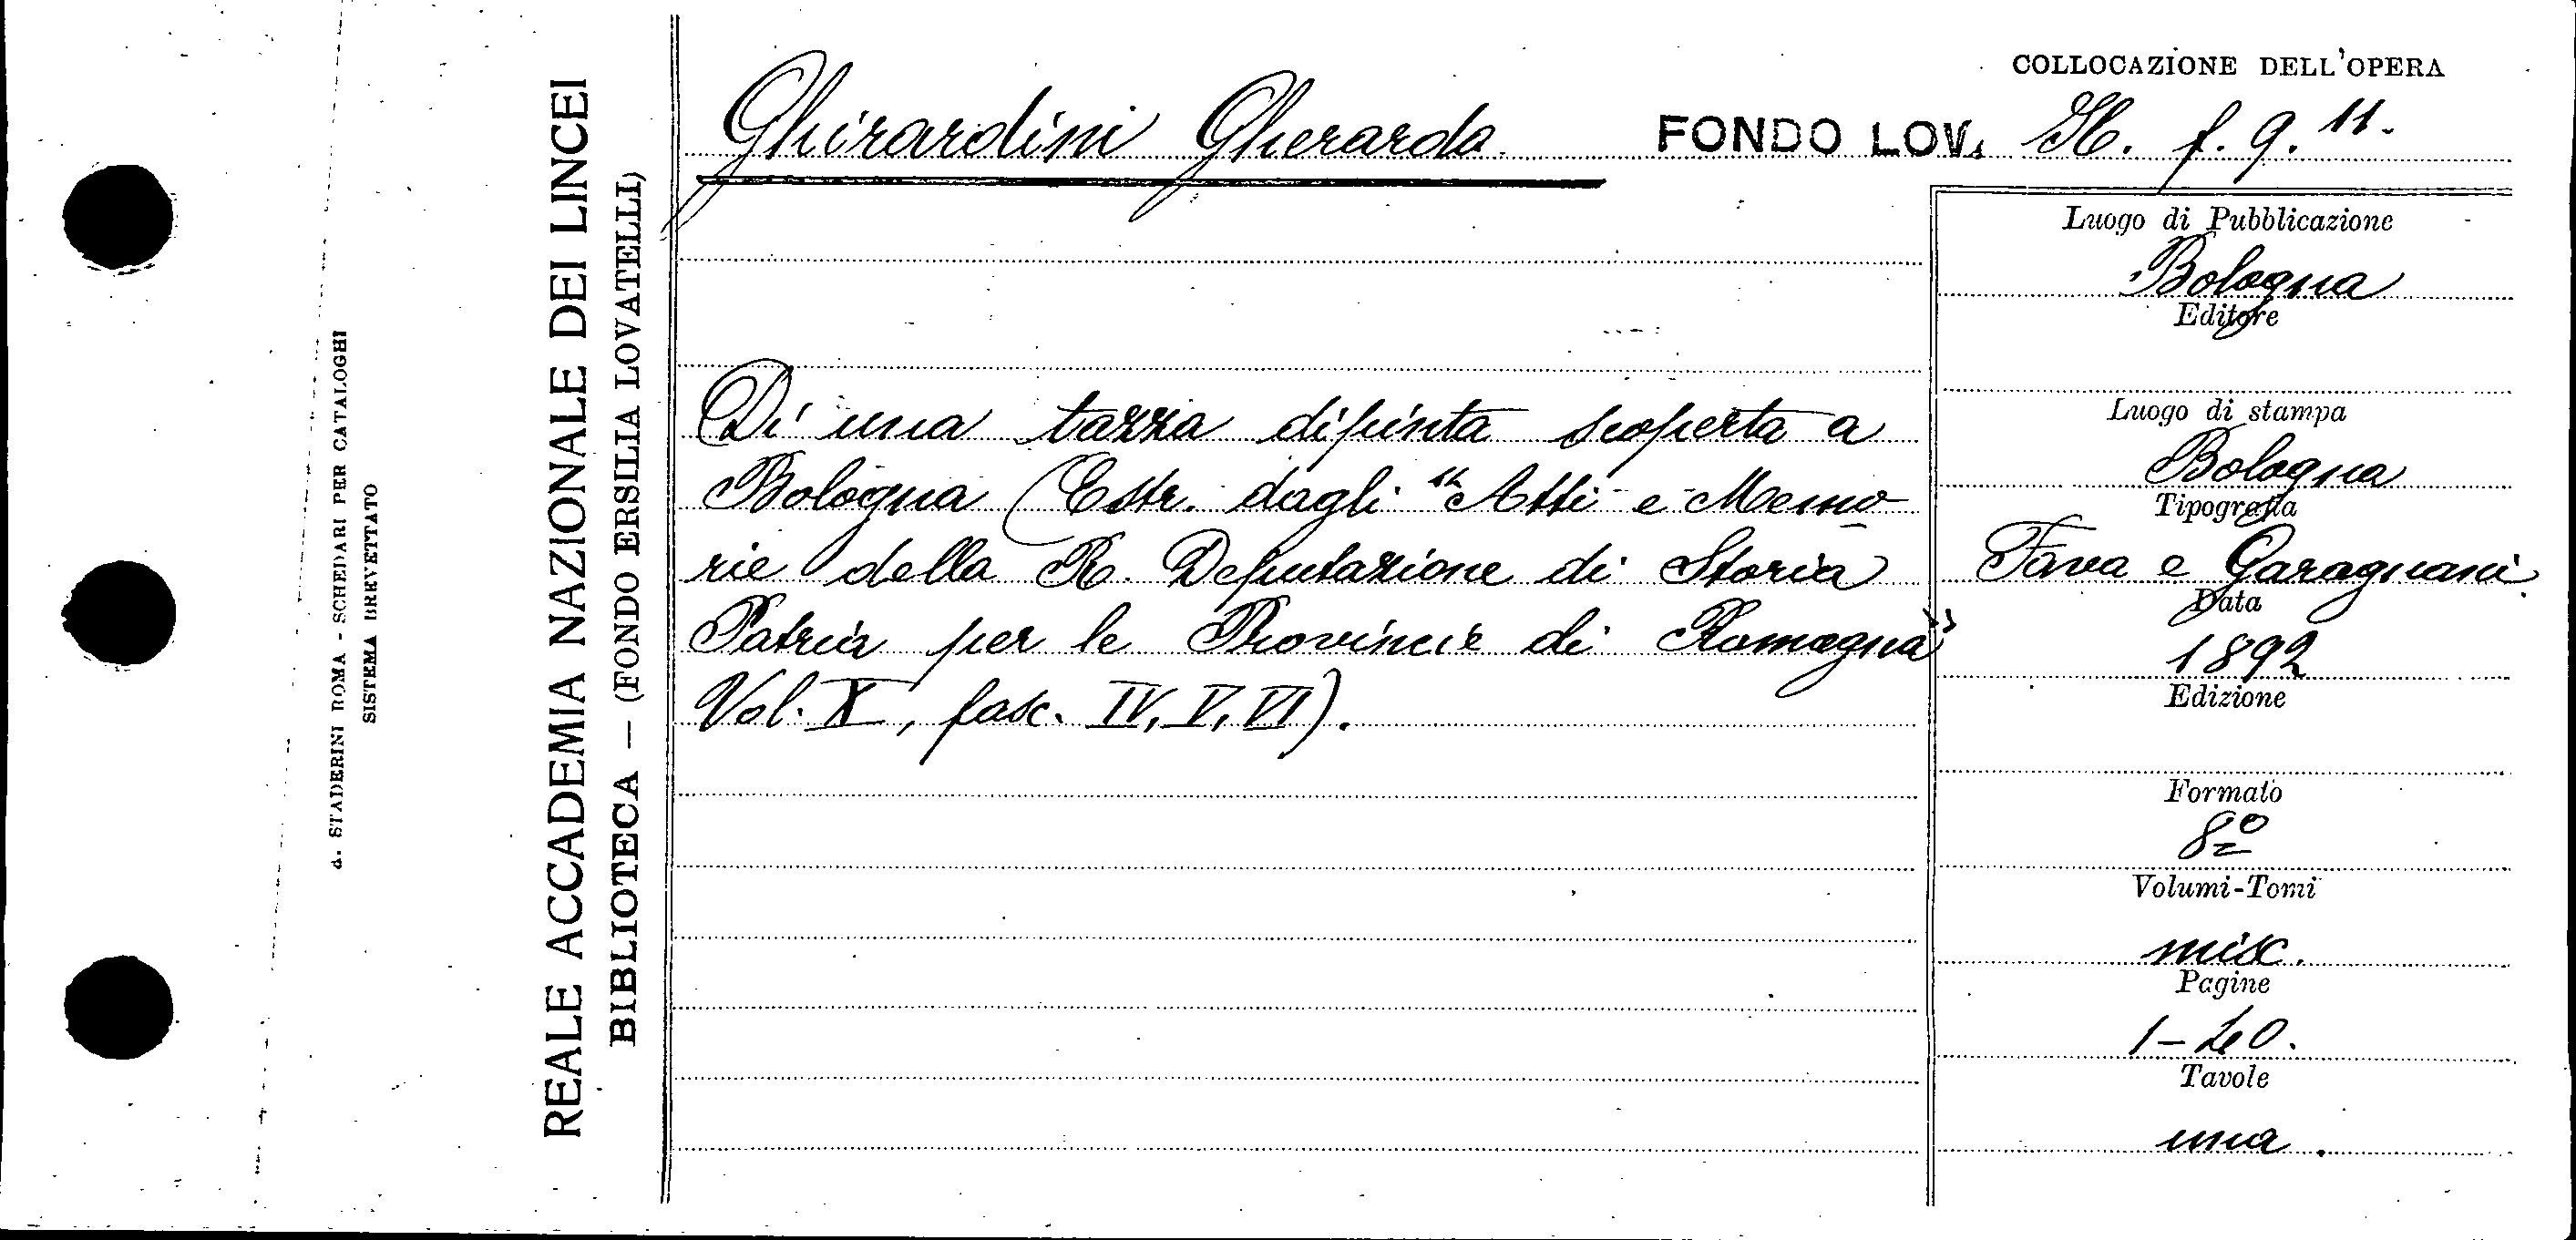 REALE ACCADEMIA NAZIONALE DEI LINCEI
BIBLIOTECA — (FONDO ERSILIA LOVATELLI)
d. STADERINI ROMA - SCHEDARI PER CATALOGHI
SISTEMA BREVETTATO
COLLOCAZIONE DELL'OPERA
Ghirardini Gherardo. FONDO LOV. f. 9. 11.
Di una tazza dipinta scoperta a
Bologna (Estr. dagli "Atti e Memo-
rie della R. Deputazione di Storia
Patria per le Provincie di Romagna"
Vol. X, fasc. IV, V, VI).
Luogo di Pubblicazione
Bologna
Editore
Luogo di stampa
Bologna
Tipografia
Fava e Garagnani.
Data
1892
Edizione
Formato
8º
Volumi-Tomi
misc.
Pagine
1-20.
Tavole
una.